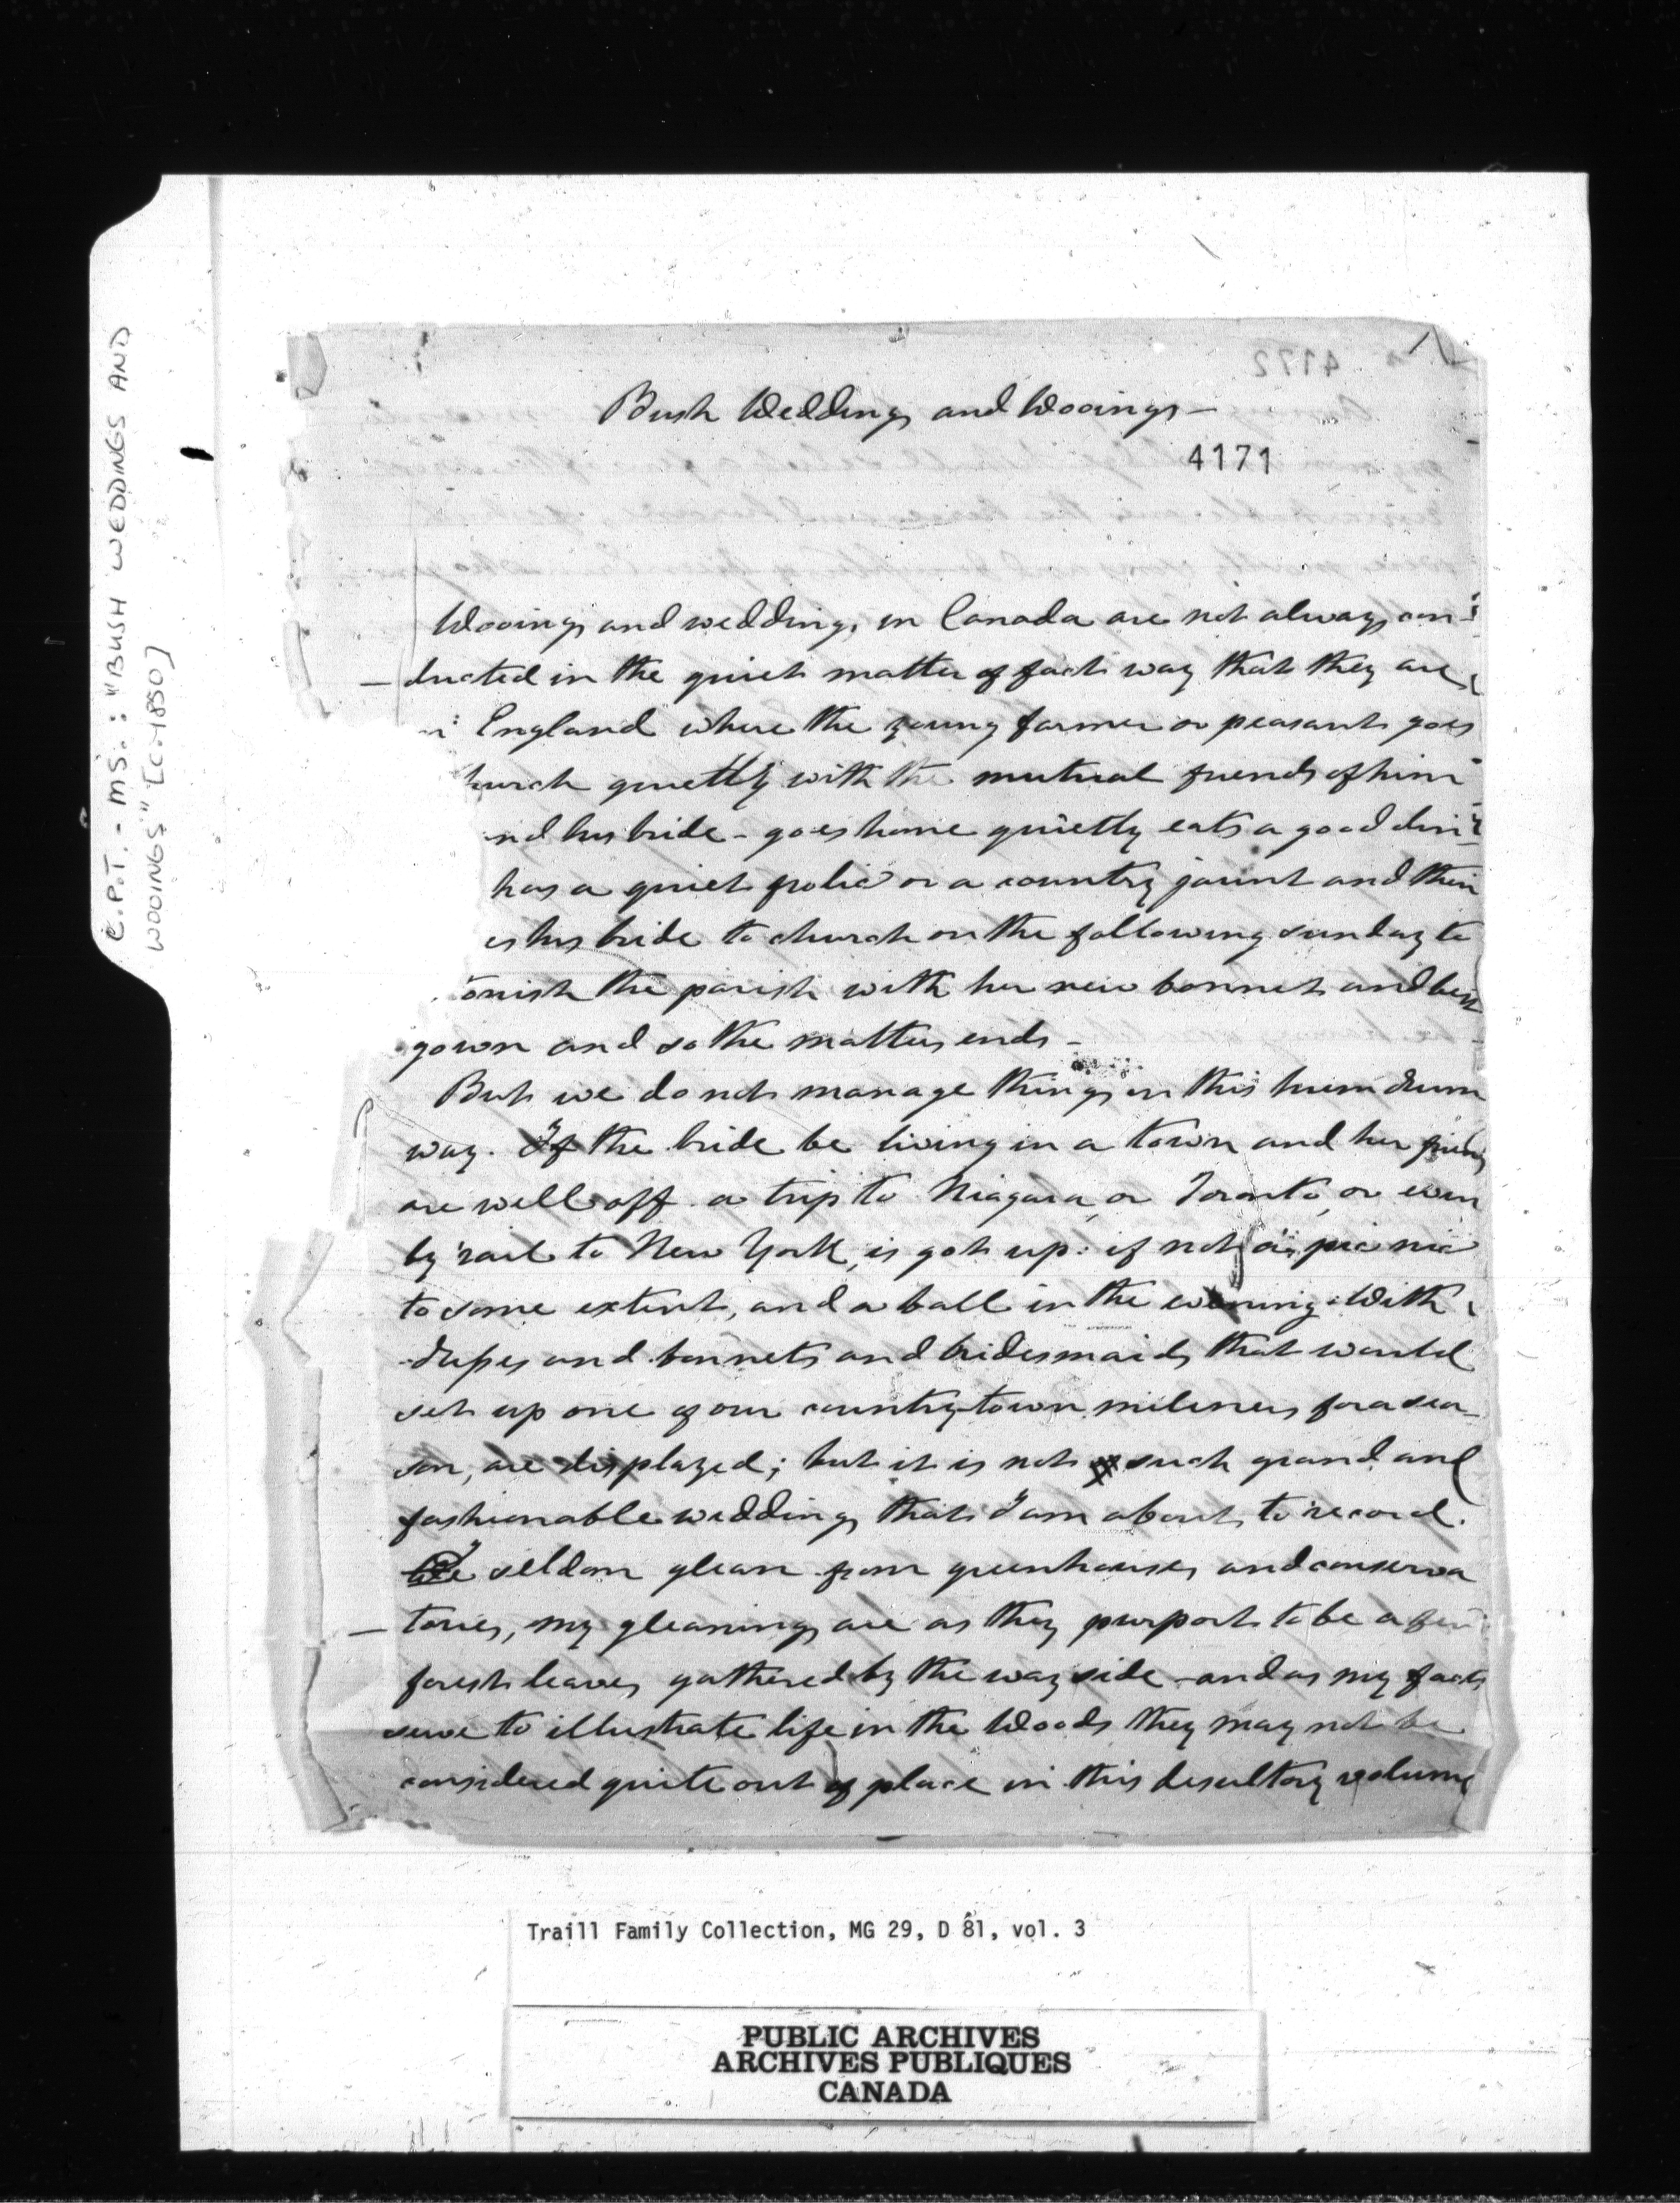 C.P.T. - MS.: "BUSH WEDDINGS AND
WOOINGS" [c. 1850]
4172
Bush Weddings and Wooings -
4171
Wooings and weddings, in Canada are not always con-
- ducted in the quiet matter of fact way that they are
England where the young farmer or peasant goes
hurch quietly with the mutual friends of him
nd his bride - goes home quietly eats a good din
has a quiet frolic or a country jaunt and then
es his bride to church on the following sunday to
onish the parish with her new bonnet and best
gown and so the matter ends -
But we do not manage things in this hum drum
way. If the bride be living in a town and her friends
are well off a trip to Niagara, or Toronto, or even
by rail to New York, is got up: if not a pic nic
to some extent, and a ball in the evening. With
and bonnets and bridesmaids that would
set up one of our country town mileners for a sea-
son, are displayed; but it is not such grand and
fashionable weddings that I am about to record.
I seldom glean from greenhouses and conserva
- tories, my gleanings are as they purport to be a few
forest leaves gathered by the way side - and as my facts
serve to illustrate life in the Woods they may not be
considered quite out of place in this desultory volume
Traill Family Collection, MG 29, D 81, vol. 3
PUBLIC ARCHIVES
ARCHIVES PUBLIQUES
CANADA